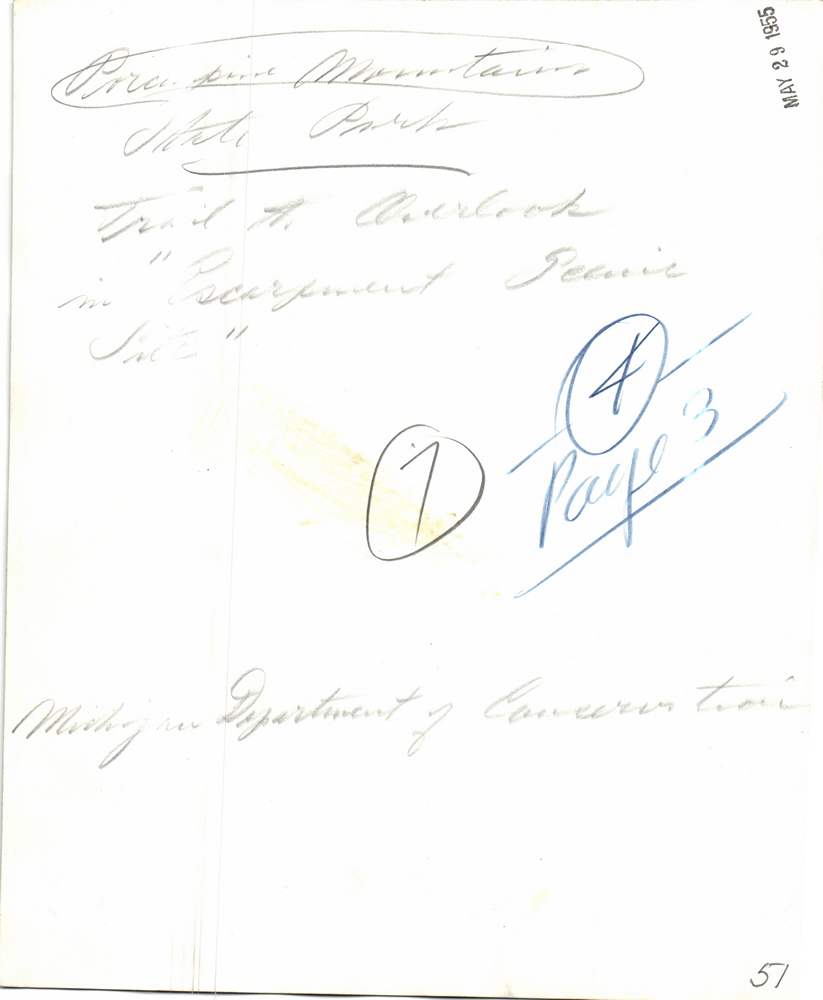 MAY 29 1955
Porcupine Mountains
State Park
Trail to Overlook
in "Escarpment Scenic
Site"
4
Page 3
1
Michigan Department of Conservation
51